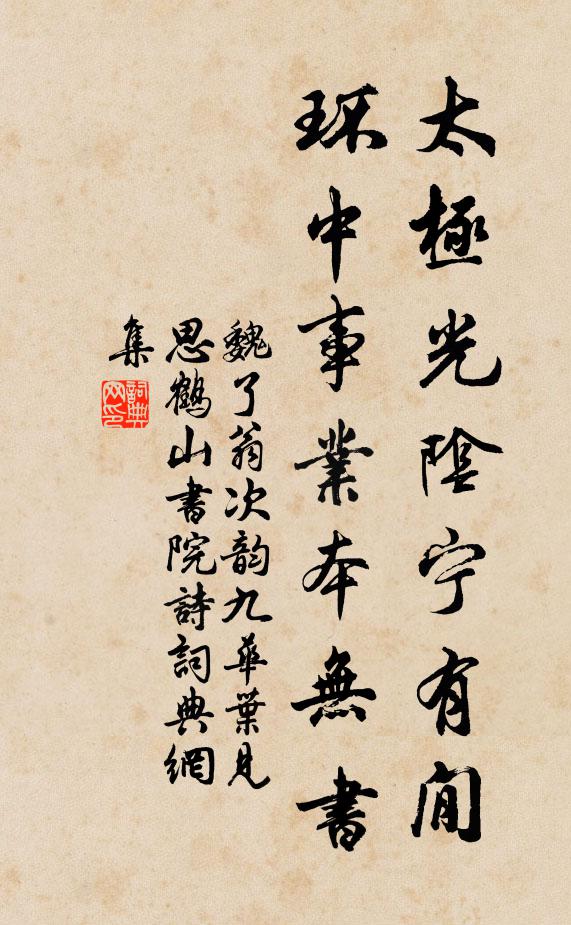 太極光陰宁有間
环中事業本無書
魏了翁次韵九華葉見
思鶴山書院詩詞典網
集
詞典
网印